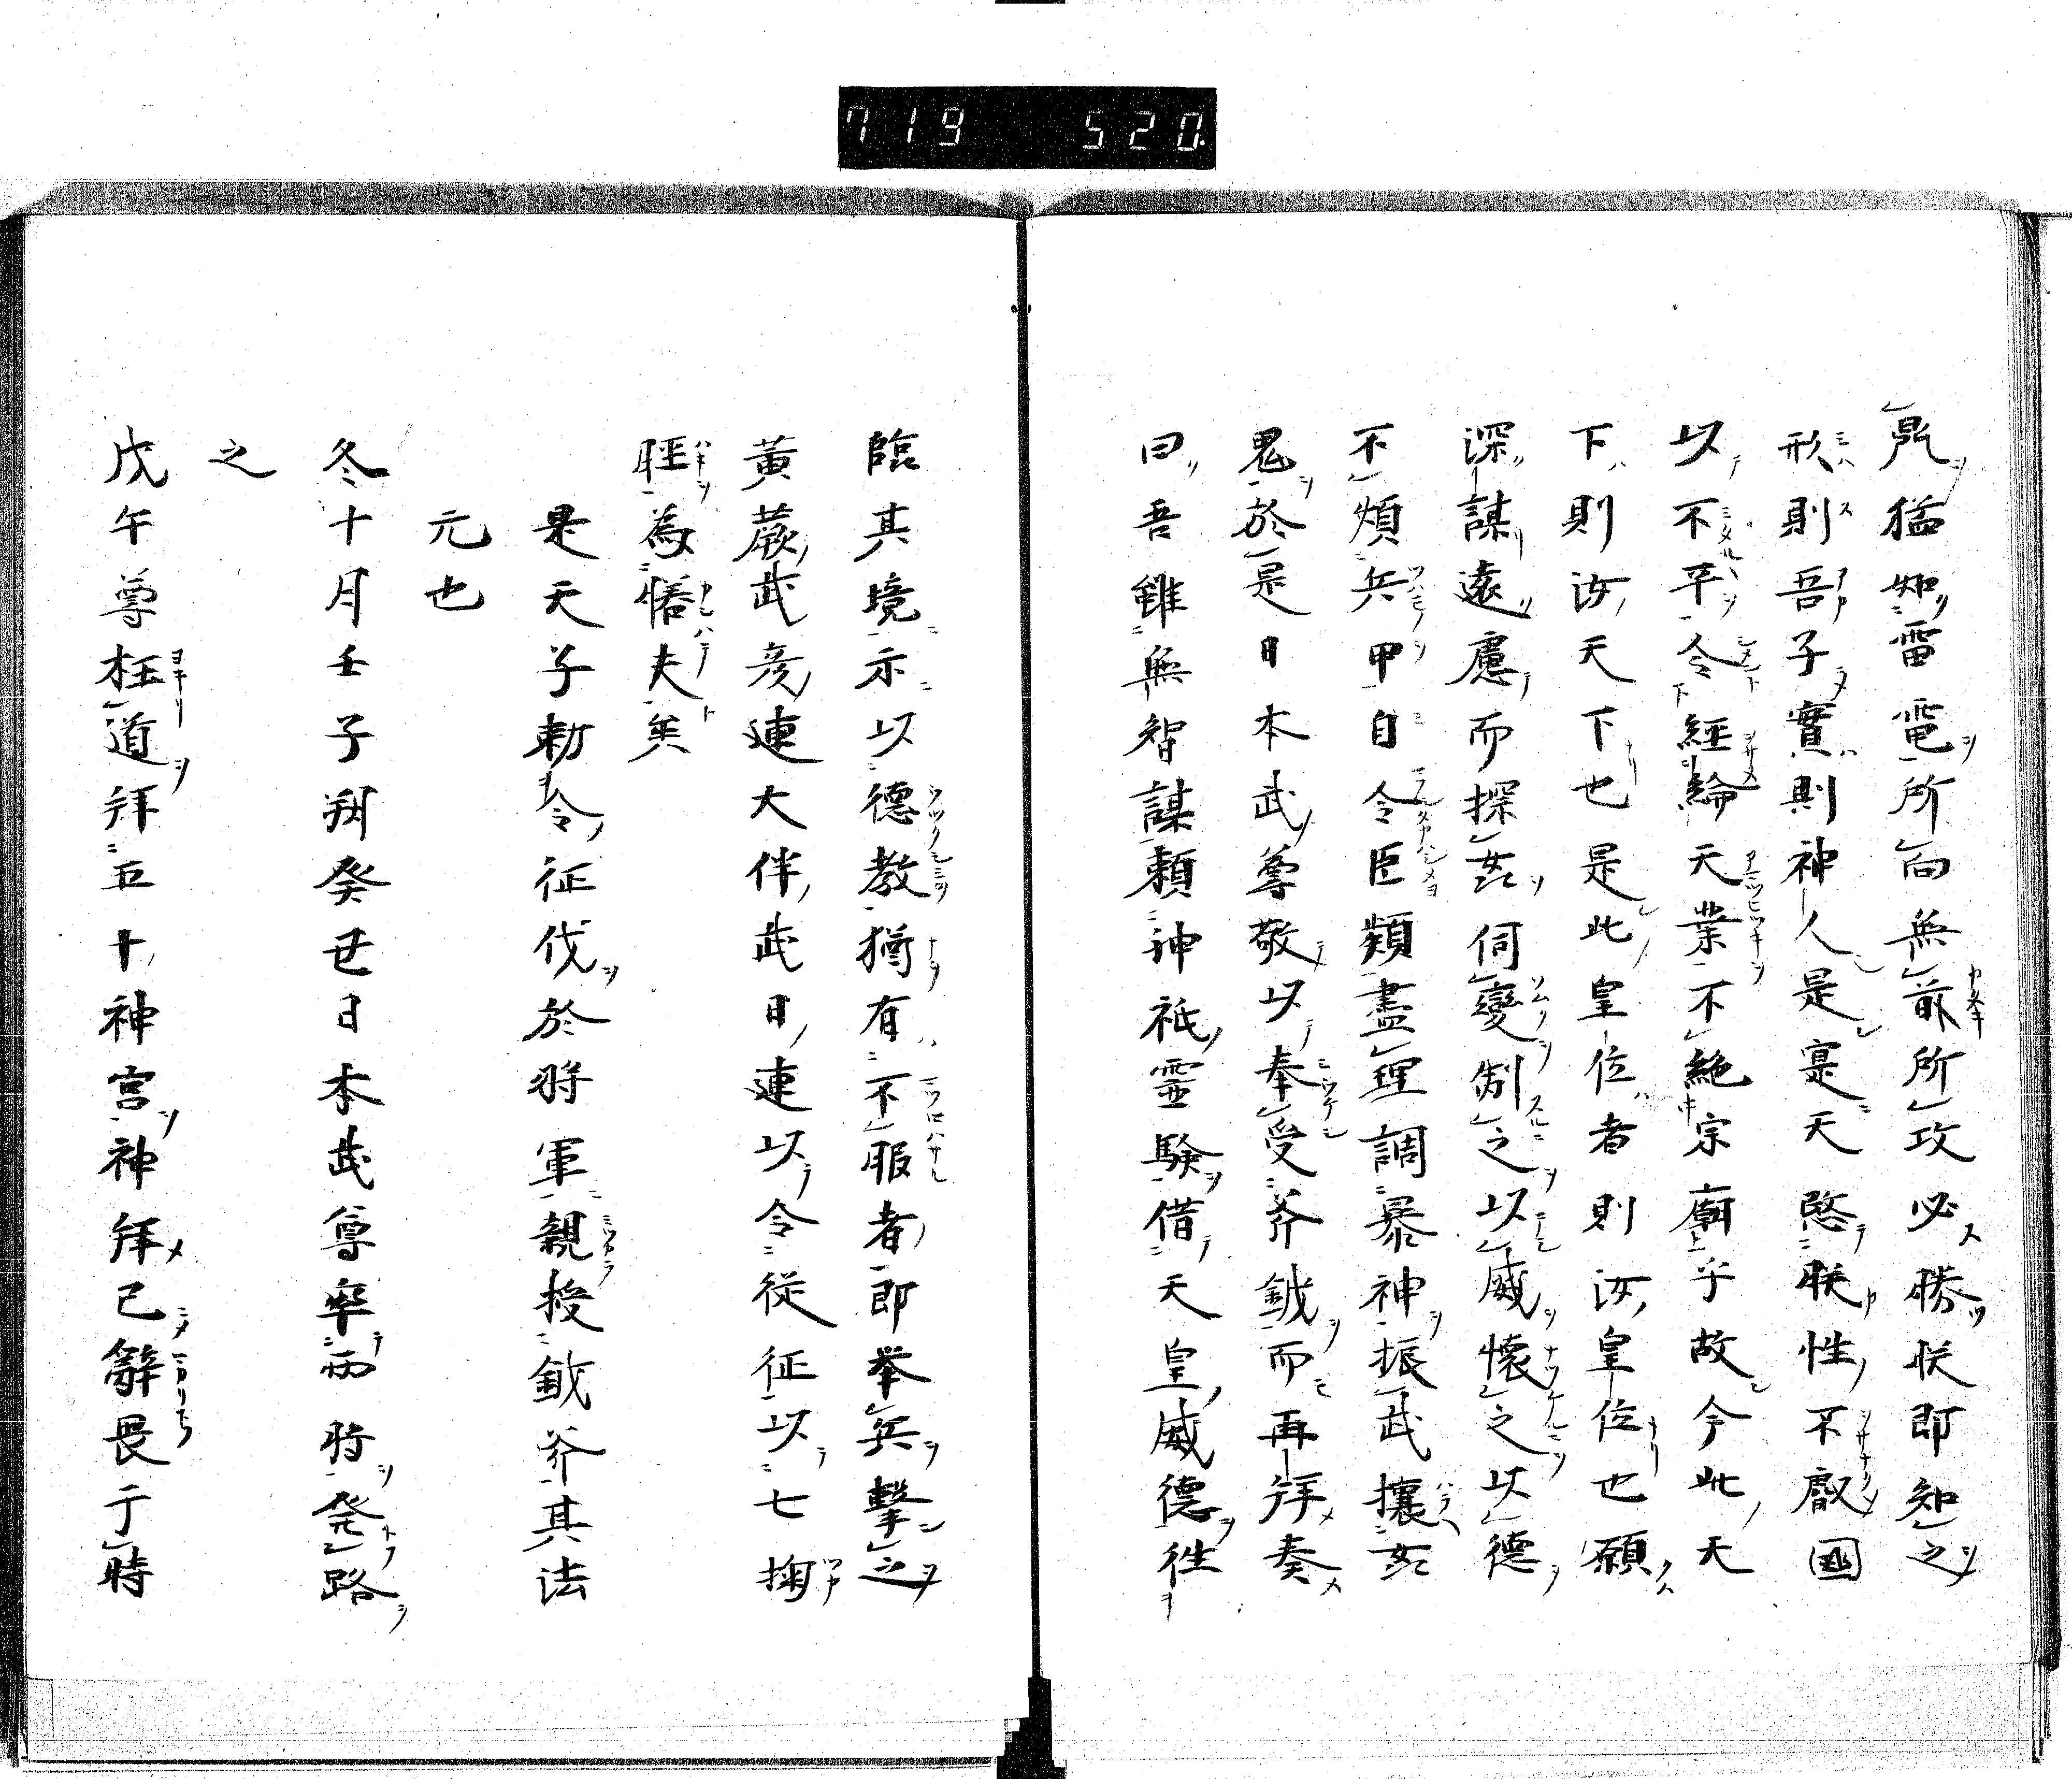 719 520.
鼎猛如雷電所向無前所攻必勝状即知之
形則吾子實則神人是寔天愍朕性不叡國
以不平令經綸天業不絶宗廟乎故今此天
下則汝天下也是此皇位者則汝皇位也願
深謀遠慮而探姦伺變制之以威懐之以德
不煩兵甲自令臣類盡理調暴神振武攘姦
鬼於是日本武尊敬以奉受斧鉞而再拜奏
曰吾雖無智謀頼神祇霊験借天皇威德往
臨其境示以德教猶有不服者即挙兵擊之
黄蕨武彦連大伴武日連以令従征以七掬
脛為膳夫矣
是天子勅令征伐於将軍親授鉞斧其法
元也
冬十月壬子朔癸丑日本武尊率両将発路
之
戊午尊枉道拜五十神宮神拜已辭畏于時